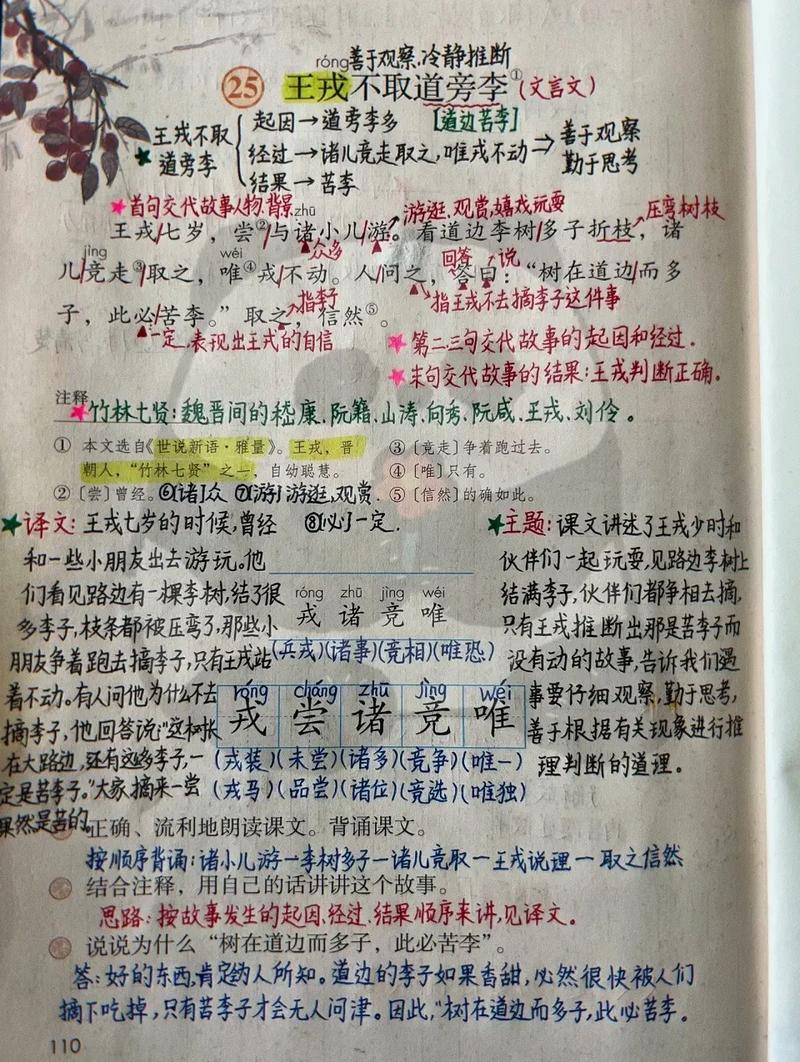 róng善于观察、冷静推断
25 王戎不取道旁李①(文言文)
起因→道旁李多 [道边苦李]
王戎不取道旁李 经过→诸儿竞走取之,唯戎不动⇒善于观察 勤于思考
结果→苦李
首句交代故事人物、背景 zhū 游逛、观赏,嬉戏玩耍 压弯树枝
王戎/七岁,尝②/与诸小儿/游。看道边李树/多子折枝,诸
jìng wéi 众多 回答 说
儿/竞走③/取之,唯④戎/不动。人/问之,答曰:“树在道边/而多
指李子 指王戎不去摘李子这件事
子,此必/苦李。”取之,信然⑤。
一定,表现出王戎的自信
第二、三句交代故事的起因和经过.
末句交代故事的结果:王戎判断正确。
注释
竹林七贤:魏晋间的嵇康、阮籍、山涛、向秀、阮咸、王戎、刘伶。
① 本文选自《世说新语·雅量》。王戎,晋
朝人,“竹林七贤”之一,自幼聪慧。
② 〔尝〕曾经。⑥[诸]众 ⑦[游]游逛,观赏.
③〔竞走〕争着跑过去。
④〔唯〕只有。
⑤〔信然〕的确如此。
⑧[必]一定.
译文:王戎七岁的时候,曾经
和一些小朋友出去游玩。他
们看见路边有一棵李树,结了很
多李子,枝条都被压弯了,那些小
朋友争着跑去摘李子,只有王戎站
着不动。有人问他为什么不去
摘李子,他回答说:“这树长
在大路边,还有这多李子,一
定是苦李子。”大家摘来一尝
果然是苦的。
róng zhū jìng wéi
戎 诸 竞 唯
(兵戎)(诸事)(竞相)(唯恐)
róng cháng zhū jìng wéi
戎 尝 诸 竞 唯
(戎装)(未尝)(诸多)(竞争)(唯一)
(戎马)(品尝)(诸位)(竞选)(唯独)
主题:课文讲述了王戎少时和
伙伴们一起玩耍,见路边李树上
结满李子,伙伴们都争相去摘,
只有王戎推断出那是苦李子而
没有动的故事,告诉我们遇
事要仔细观察,勤于思考,
善于根据有关现象进行推
理判断的道理。
正确、流利地朗读课文。背诵课文。
按顺序背诵:诸小儿游—李树多子—诸儿竞取—王戎说理—取之信然
结合注释,用自己的话讲讲这个故事。
思路:按故事发生的起因、经过、结果顺序来讲,见译文。
说说为什么“树在道边而多子,此必苦李”。
答:好的东西,肯定为人所知。道边的李子如果香甜,必然很快被人们
摘下吃掉,只有苦李子才会无人问津。因此,“树在道边而多子,此必苦李。
110